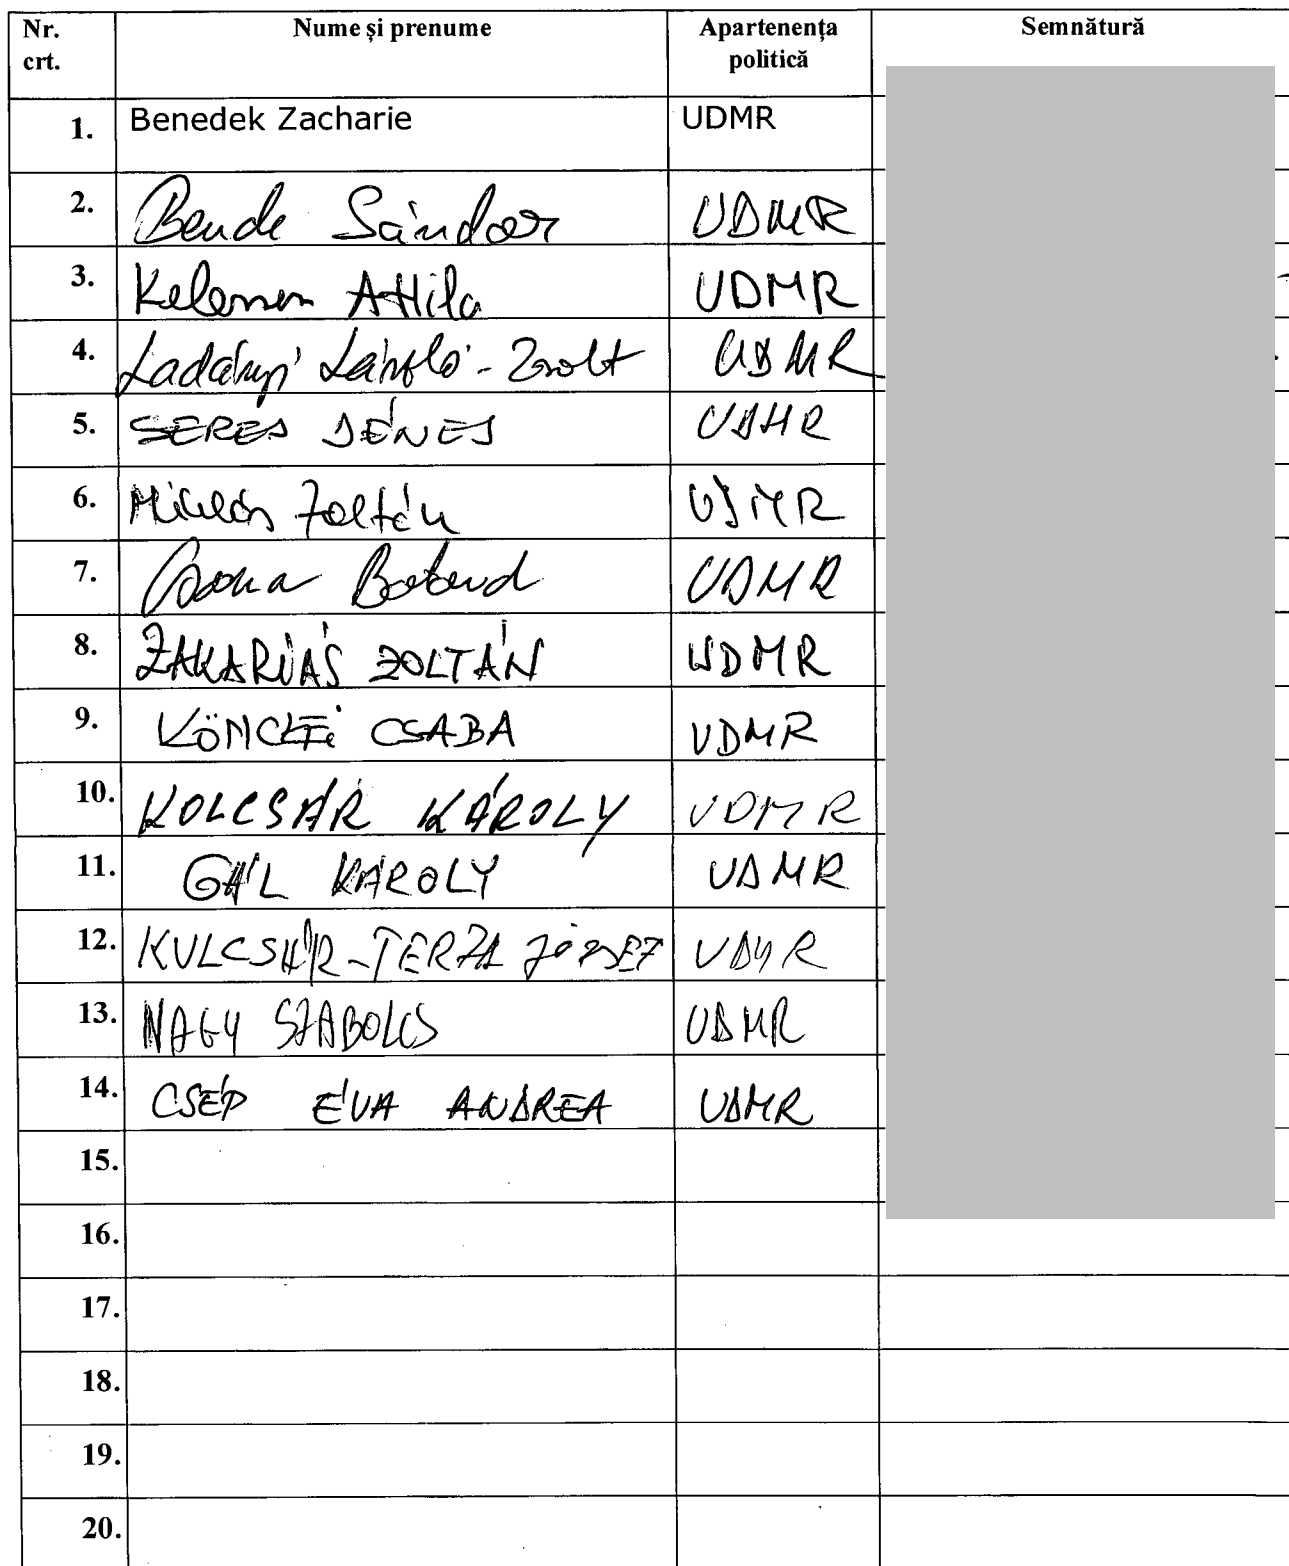 Nr. crt. Nume și prenume Apartenența politică Semnătură
1. Benedek Zacharie UDMR
2. Bende Sándor UDMR
3. Kelemen Attila UDMR
4. Ladányi László-Zsolt UDMR
5. SERES DÉNES UDMR
6. Miklós Zoltán UDMR
7. Botond UDMR
8. ZAKARIÁS ZOLTÁN UDMR
9. KÖNCZEI CSABA UDMR
10. KOLCSÁR KÁROLY UDMR
11. GÁL KÁROLY UDMR
12. KULCSÁR-TERZA JÓZSEF UDMR
13. NAGY SZABOLCS UDMR
14. CSÉP ÉVA ANDREA UDMR
15.
16.
17.
18.
19.
20.